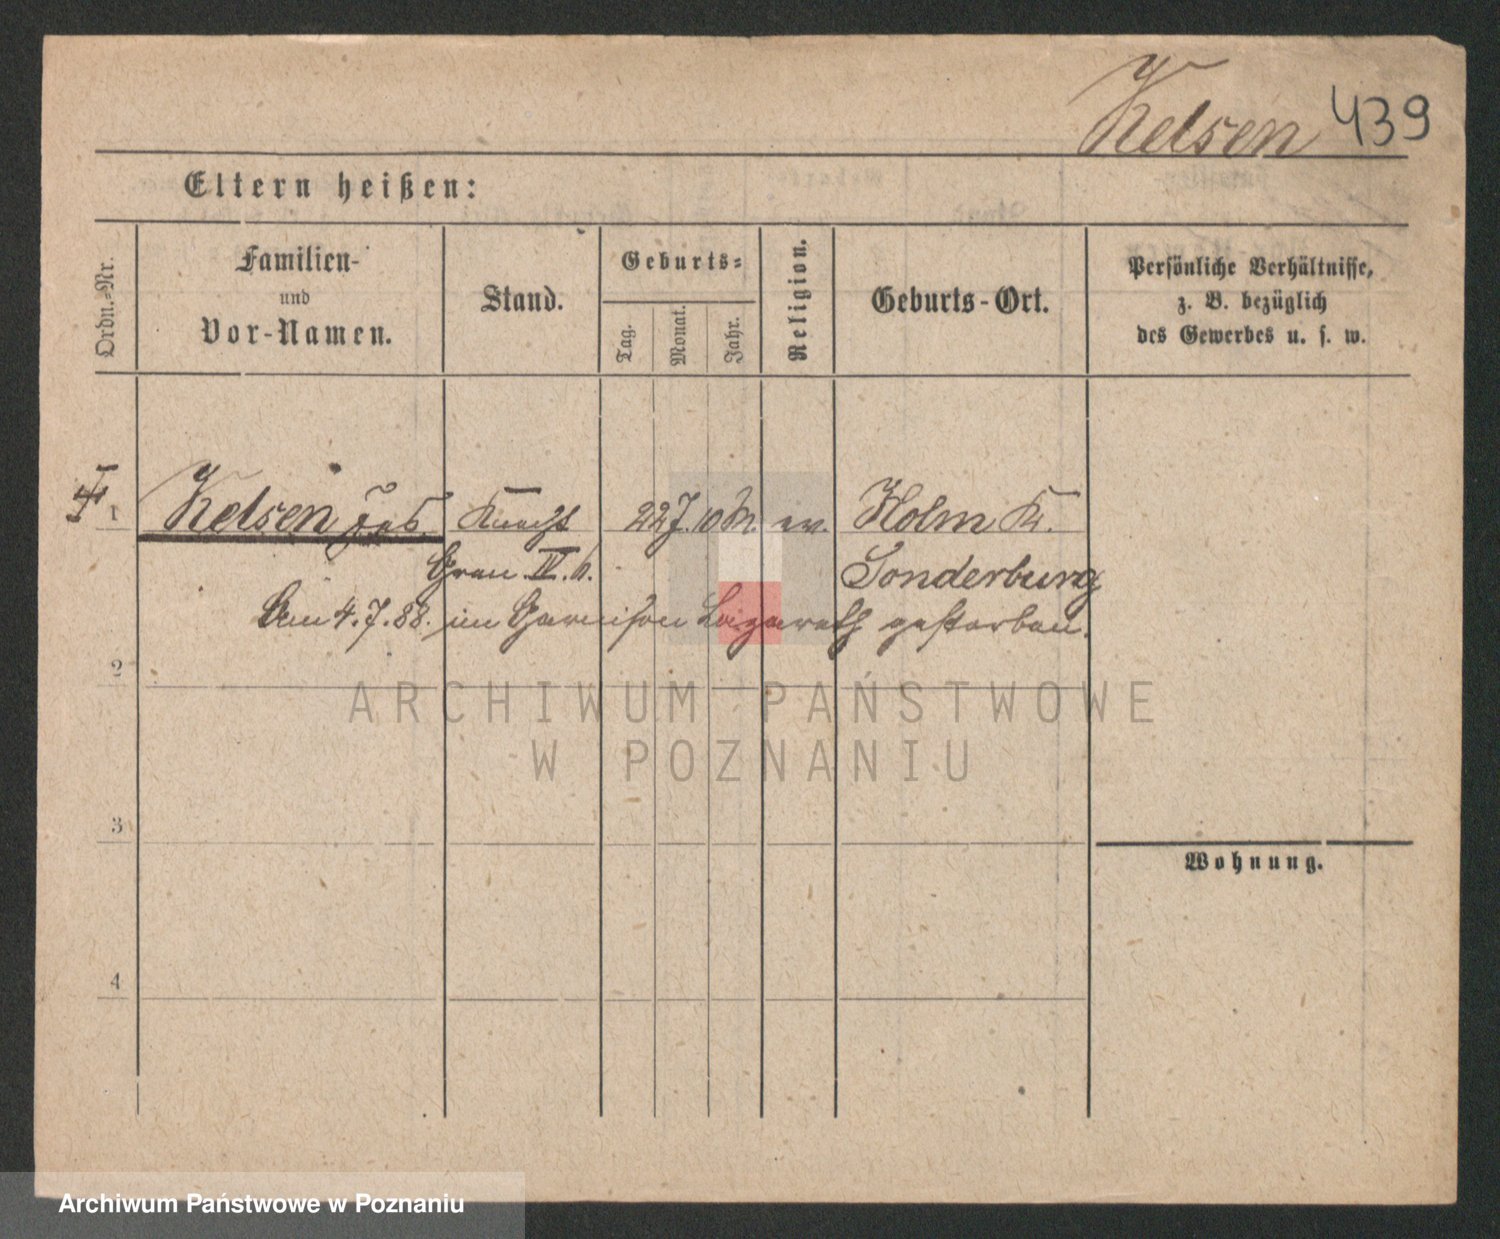 Kelsen 439
Eltern heißen:
Ordn.-Nr.
Familien-
und
Vor-Namen.
Stand.
Geburts-
Tag.
Monat.
Jahr.
Religion.
Geburts-Ort.
Persönliche Verhältnisse,
z. B. bezüglich
des Gewerbes u. s. w.
1 Kelsen Jas. Knecht 22 J. 10 M. ev. Holm Kr.
Gren. IV. Sonderburg
Am 4.7.88. im Garnison Lazareth gestorben.
2
ARCHIWUM PAŃSTWOWE
W POZNANIU
3
Wohnung.
4
Archiwum Państwowe w Poznaniu